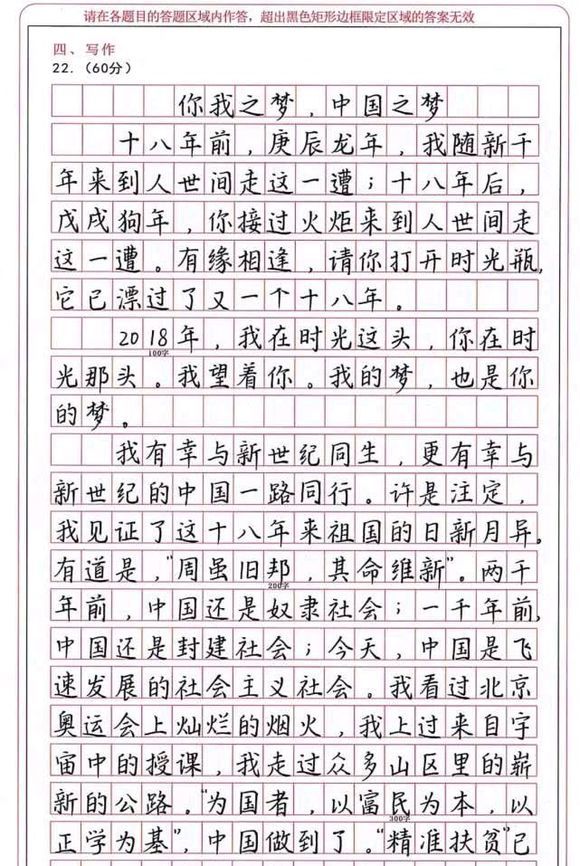 请在各题目的答题区域内作答，超出黑色矩形边框限定区域的答案无效
四、写作
22.（60分）
你我之梦，中国之梦
十八年前，庚辰龙年，我随新千
年来到人世间走这一遭；十八年后，
戊戌狗年，你接过火炬来到人世间走
这一遭。有缘相逢，请你打开时光瓶，
它已漂过了又一个十八年。
2018年，我在时光这头，你在时
100字
光那头。我望着你。我的梦，也是你
的梦。
我有幸与新世纪同生，更有幸与
新世纪的中国一路同行。许是注定，
我见证了这十八年来祖国的日新月异。
有道是，“周虽旧邦，其命维新”。两千
200字
年前，中国还是奴隶社会；一千年前，
中国还是封建社会；今天，中国是飞
速发展的社会主义社会。我看过北京
奥运会上灿烂的烟火，我上过来自宇
宙中的授课，我走过众多山区里的崭
新的公路。“为国者，以富民为本，以
300字
正学为基”，中国做到了。“精准扶贫”已